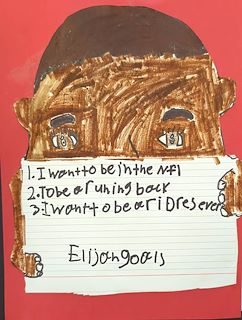 1. I want to be in the NFl
2. To be a runing back
3. I want to be a riDresever
Elijah goals